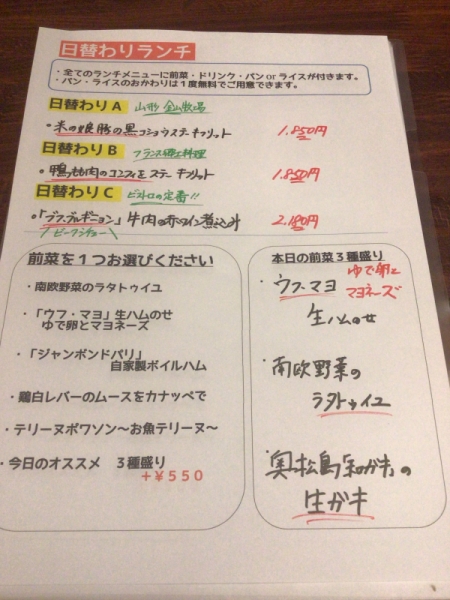 日替わりランチ
・全てのランチメニューに前菜・ドリンク・パン or ライスが付きます。
・パン・ライスのおかわりは１度無料でご用意できます。
日替わり A 山形 金山牧場
・米の娘豚の黒コショウステーキフリット 1.850円
日替わり B フランス郷土料理
・鴨もも肉のコンフィ
フリット 1.850円
日替わり C ビストロの定番!!
・「ブフ・ブルギニョン」牛肉の赤ワイン煮込み 2.180円
ビーフシチュー
前菜を１つお選びください
・南欧野菜のラタトゥイユ
・「ウフ・マヨ」生ハムのせ
ゆで卵とマヨネーズ
・「ジャンボンドパリ」
自家製ボイルハム
・鶏白レバーのムースをカナッペで
・テリーヌポワソン〜お魚テリーヌ〜
・今日のオススメ　３種盛り
＋￥５５０
本日の前菜３種盛り
・ウフ・マヨ ゆで卵と
マヨネーズ
生ハムのせ
・南欧野菜の
ラタトゥイユ
・奥松島
の
生ガキ